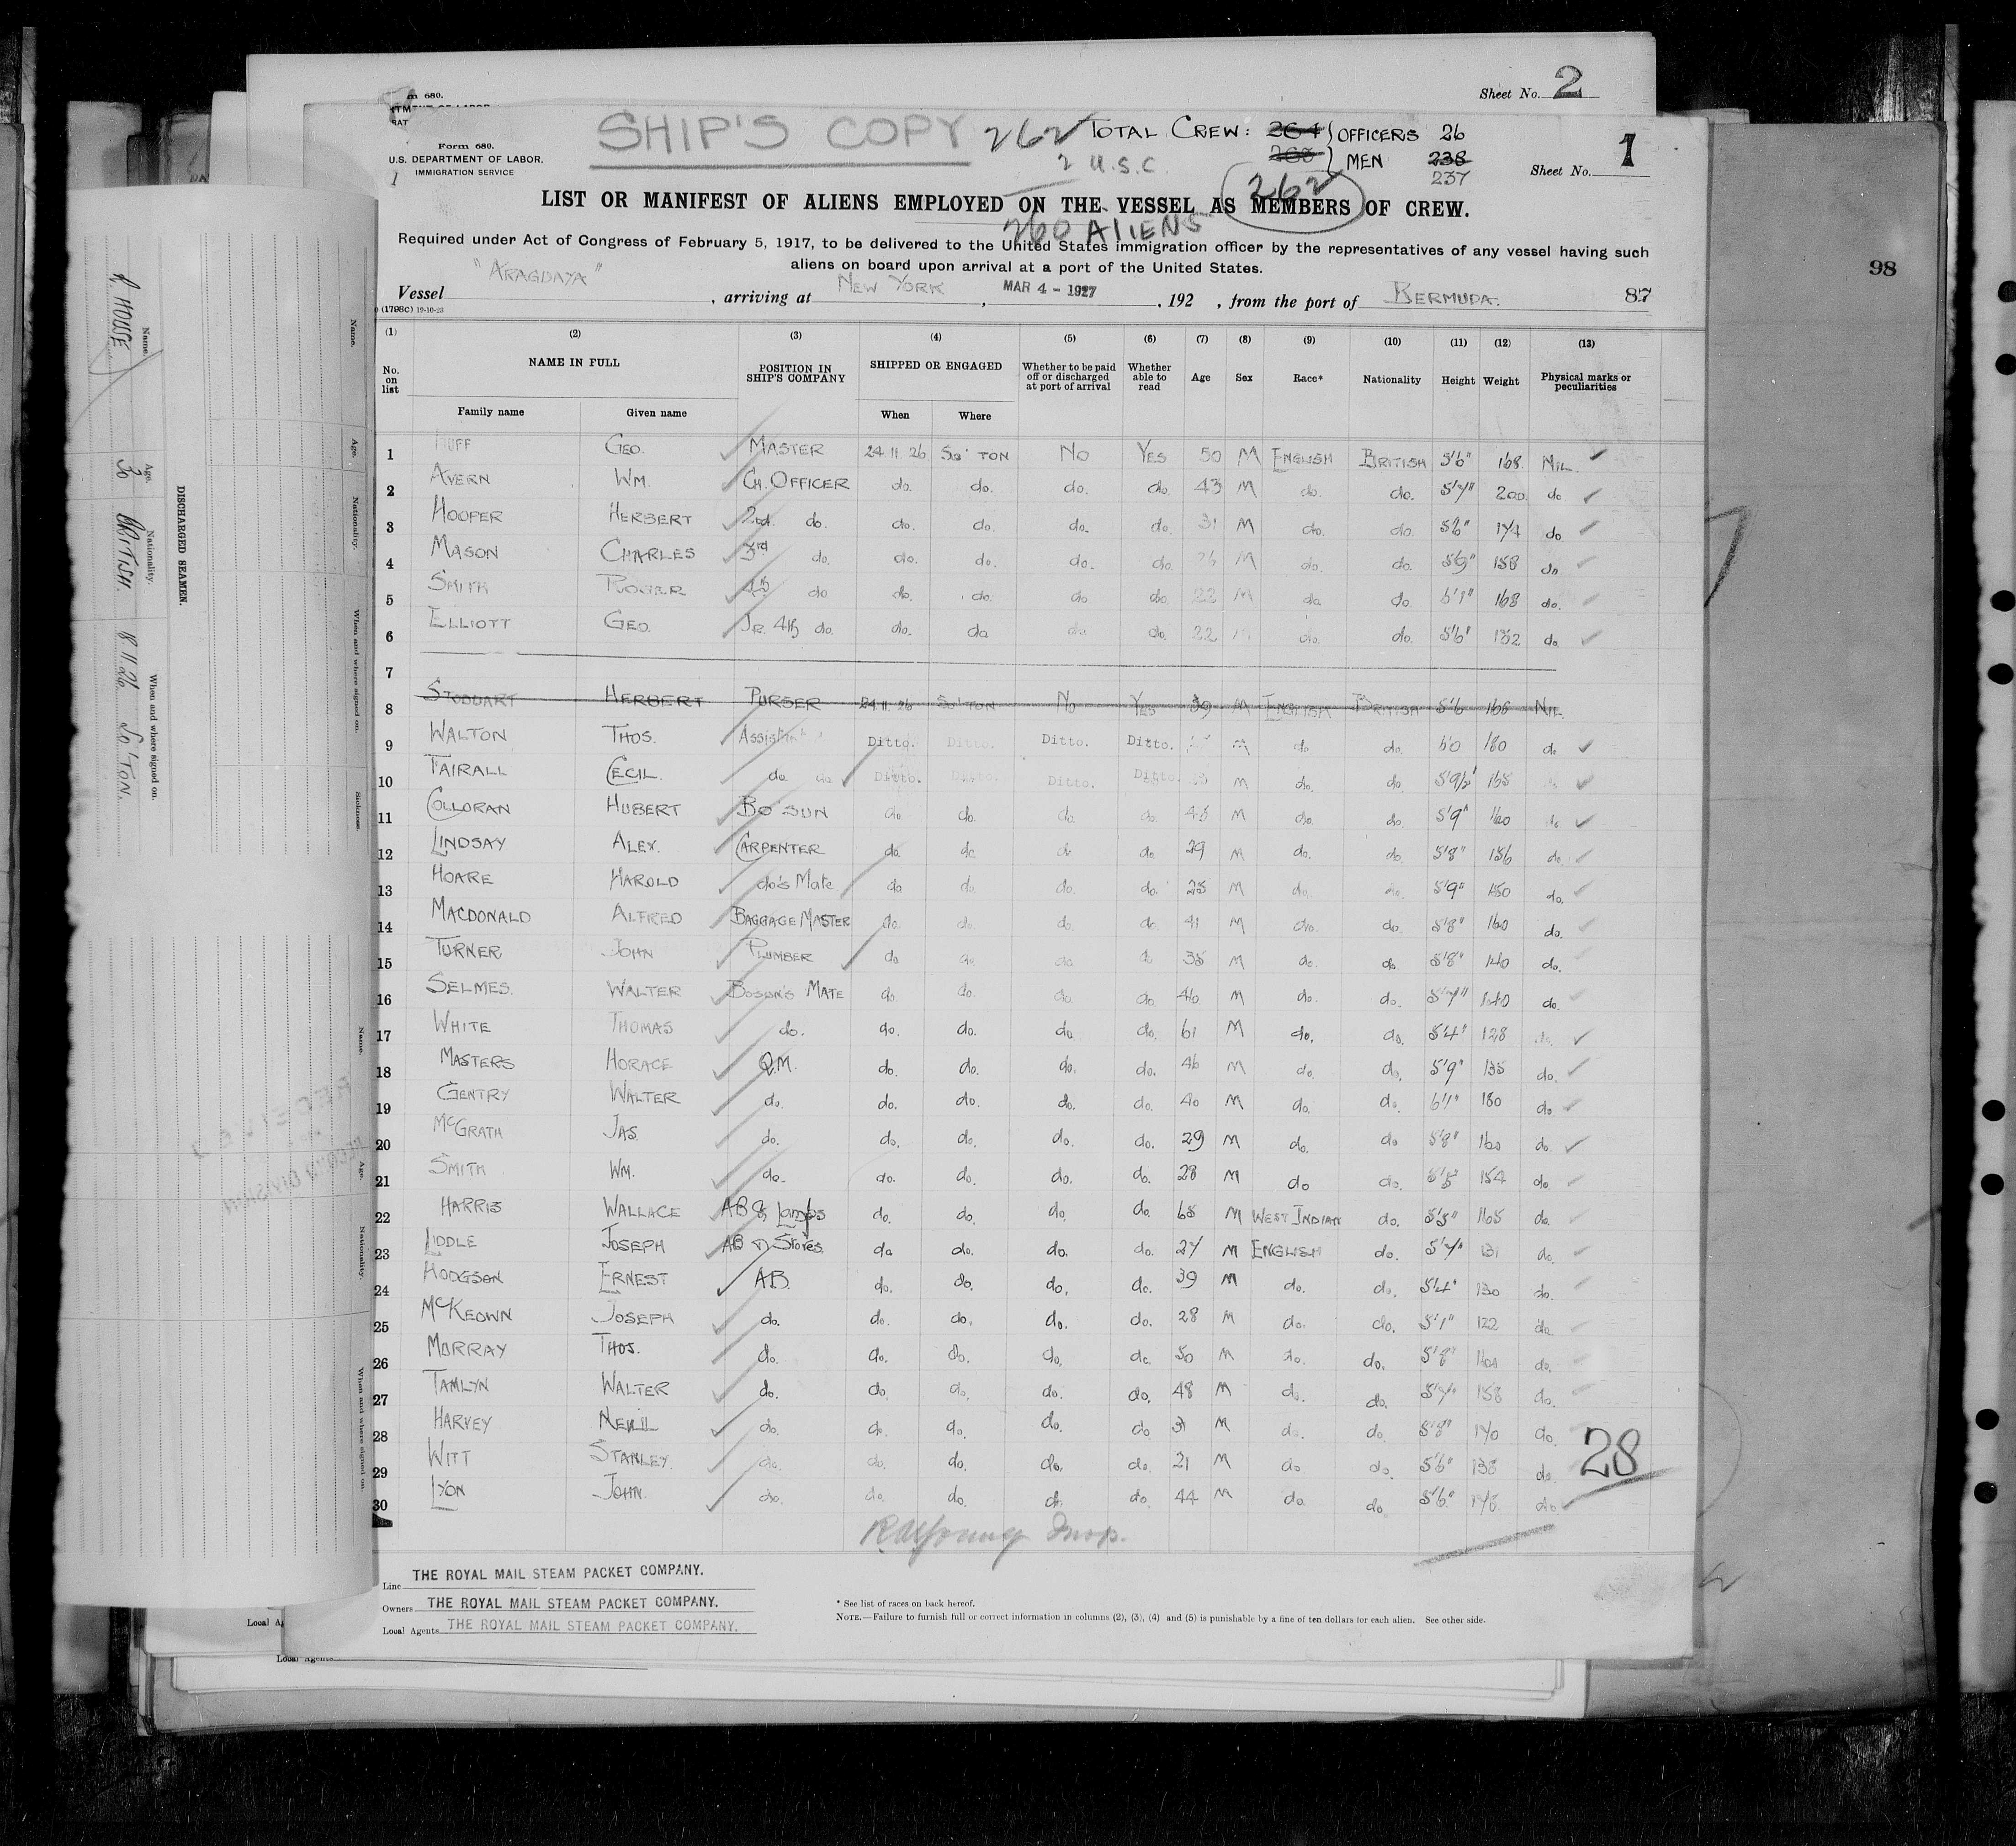 Sheet No. 2
m 680.
SHIP'S COPY 262 TOTAL CREW: 264 OFFICERS 26
268 MEN 238
237
2 U.S.C.
Sheet No. 1
Form 680.
U.S. DEPARTMENT OF LABOR.
IMMIGRATION SERVICE
262
LIST OR MANIFEST OF ALIENS EMPLOYED ON THE VESSEL AS MEMBERS OF CREW.
260 ALIENS
Required under Act of Congress of February 5, 1917, to be delivered to the United States immigration officer by the representatives of any vessel having such
aliens on board upon arrival at a port of the United States.
98
Vessel "ARAGUAYA", arriving at NEW YORK, MAR 4 - 1927, 192 , from the port of BERMUDA. 87
(1798C) 10-10-23
(1) (2) (3) (4) (5) (6) (7) (8) (9) (10) (11) (12) (13)
No. on list NAME IN FULL POSITION IN SHIP'S COMPANY SHIPPED OR ENGAGED Whether to be paid off or discharged at port of arrival Whether able to read Age Sex Race* Nationality Height Weight Physical marks or peculiarities
Family name Given name When Where
1 HUFF GEO. MASTER 24 11 26 So'TON No YES 50 M ENGLISH BRITISH 5'6" 168 NIL.
2 AVERN WM. CH. OFFICER do. do. do. do. 43 M do. do. 5'7" 200 do
3 HOOPER HERBERT 2nd. do. do. do. do. do. 31 M do. do. 5'6" 174 do.
4 MASON CHARLES 3rd do. do. do. do. do. 26 M do. do. 5'9" 158 do
5 SMITH ROGER 4th do. do. do. do do. 22 M do. do. 6'1" 168 do.
6 ELLIOTT GEO. Jr. 4th do. do. do do. do. 22 M do. do. 5'6" 132 do.
7
8 STODDART HERBERT PURSER 24 11 26 So'TON No YES 39 M ENGLISH BRITISH 5'6 166 NIL.
9 WALTON THOS. Assistant Ditto. Ditto. Ditto. Ditto. M do. do. 6'0 180 do
10 FAIRALL CECIL. do do Ditto. Ditto. Ditto. Ditto. M do. do. 5'9½" 165
11 COLLORAN HUBERT BO'SUN do. do. do. do. 45 M do. do. 5'9" 160 do
12 LINDSAY ALEX. CARPENTER do. do do do 29 M do. do. 5'8" 156 do.
13 HOARE HAROLD do's Mate do do. do. do. 25 M do. do. 5'9" 150 do.
14 MACDONALD ALFRED BAGGAGE MASTER do. do. do. do 41 M do. do. 5'8" 160 do.
15 TURNER JOHN PLUMBER do do. do do 35 M do. do. 5'8" 140 do.
16 SELMES. WALTER BOSON'S MATE do. do. do do. 46 M do. do. 5'7" 140 do.
17 WHITE THOMAS do. do. do. do. do. 61 M do. do. 5'4" 128 do.
18 MASTERS HORACE Q.M. do. do. do. do. 46 M do. do. 5'9" 135 do.
19 GENTRY WALTER do. do. do. do. do. 40 M do. do. 6'1" 180 do
20 McGRATH JAS. do. do. do. do. do. 29 M do. do 5'8" 160 do.
21 SMITH WM. do. do. do. do. do. 28 M do do. 5'5" 154 do.
22 HARRIS WALLACE AB & Lamps do. do. do. do. 65 M WEST INDIAN do. 5'5" 165 do.
23 LIDDLE JOSEPH AB & Stores. do do. do. do. 27 M ENGLISH do. 5'7" 131 do.
24 HODGSON ERNEST AB. do. do. do. do. 39 M do. do. 5'4" 130 do.
25 McKEOWN JOSEPH do. do. do. do. do. 28 M do. do. 5'1" 122 do.
26 MURRAY THOS. do. do. do. do. do. 50 M do. do. 5'8" 160 do.
27 TAMLYN WALTER do. do. do. do. do. 48 M do. do. 5'7" 158 do.
28 HARVEY NEVIL do. do. do. do. do 31 M do. do. 5'8" 170 do.
29 WITT STANLEY. do. do. do. do. do. 21 M do do. 5'6" 138 do.
30 LYON JOHN. do. do. do. do do. 44 M do. do 5'6" do
28
THE ROYAL MAIL STEAM PACKET COMPANY.
Line
Owners THE ROYAL MAIL STEAM PACKET COMPANY.
Local Agents THE ROYAL MAIL STEAM PACKET COMPANY.
* See list of races on back hereof.
NOTE.—Failure to furnish full or correct information in columns (2), (3), (4) and (5) is punishable by a fine of ten dollars for each alien. See other side.
Local Agents
DISCHARGED SEAMEN.
Name. Age. Nationality. When and where signed on.
R. HOUSE 30 BRITISH. 8 11 26 So'TON.
Name. Age. Nationality. When and where signed on. Sickness.
Name. Age. Nationality. When and where signed on.